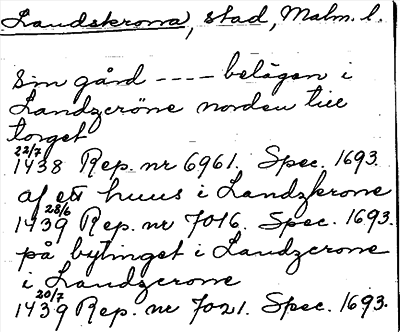 Landskrona, stad, Malm. l.
Sin gård ---- belägen i
Landzcröne norden till
torget
22/7 1438 Rep. nr 6961. Spec. 1693.
af ett huus i Landzkrone
28/6 1439 Rep. nr 7016. Spec. 1693.
på bytinget i Landzcrone
i Landzcrone
20/7 1439 Rep. nr 7021. Spec. 1693.